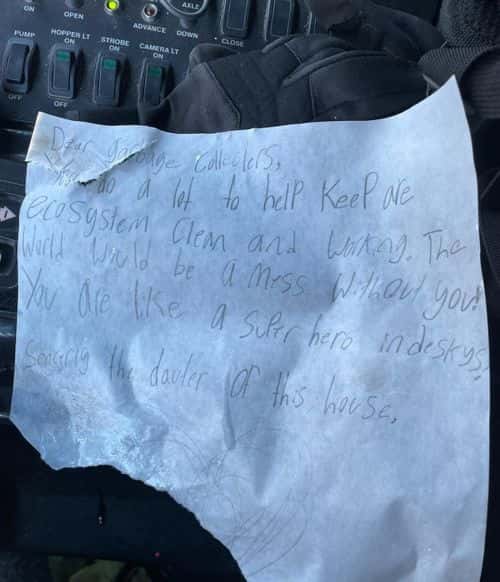 AXLE
ON
OPEN
ADVANCE
DOWN
CLOSE
PUMP
HOPPER LT
ON
STROBE
ON
CAMERA LT
ON
OFF
OFF
Dear garbage collecters,
You do a lot to help KeeP are
ecosystem Clean and working. The
World Would be a mess Without you!
You are like a super hero indeskys,
Sencerly the dauter of this house,